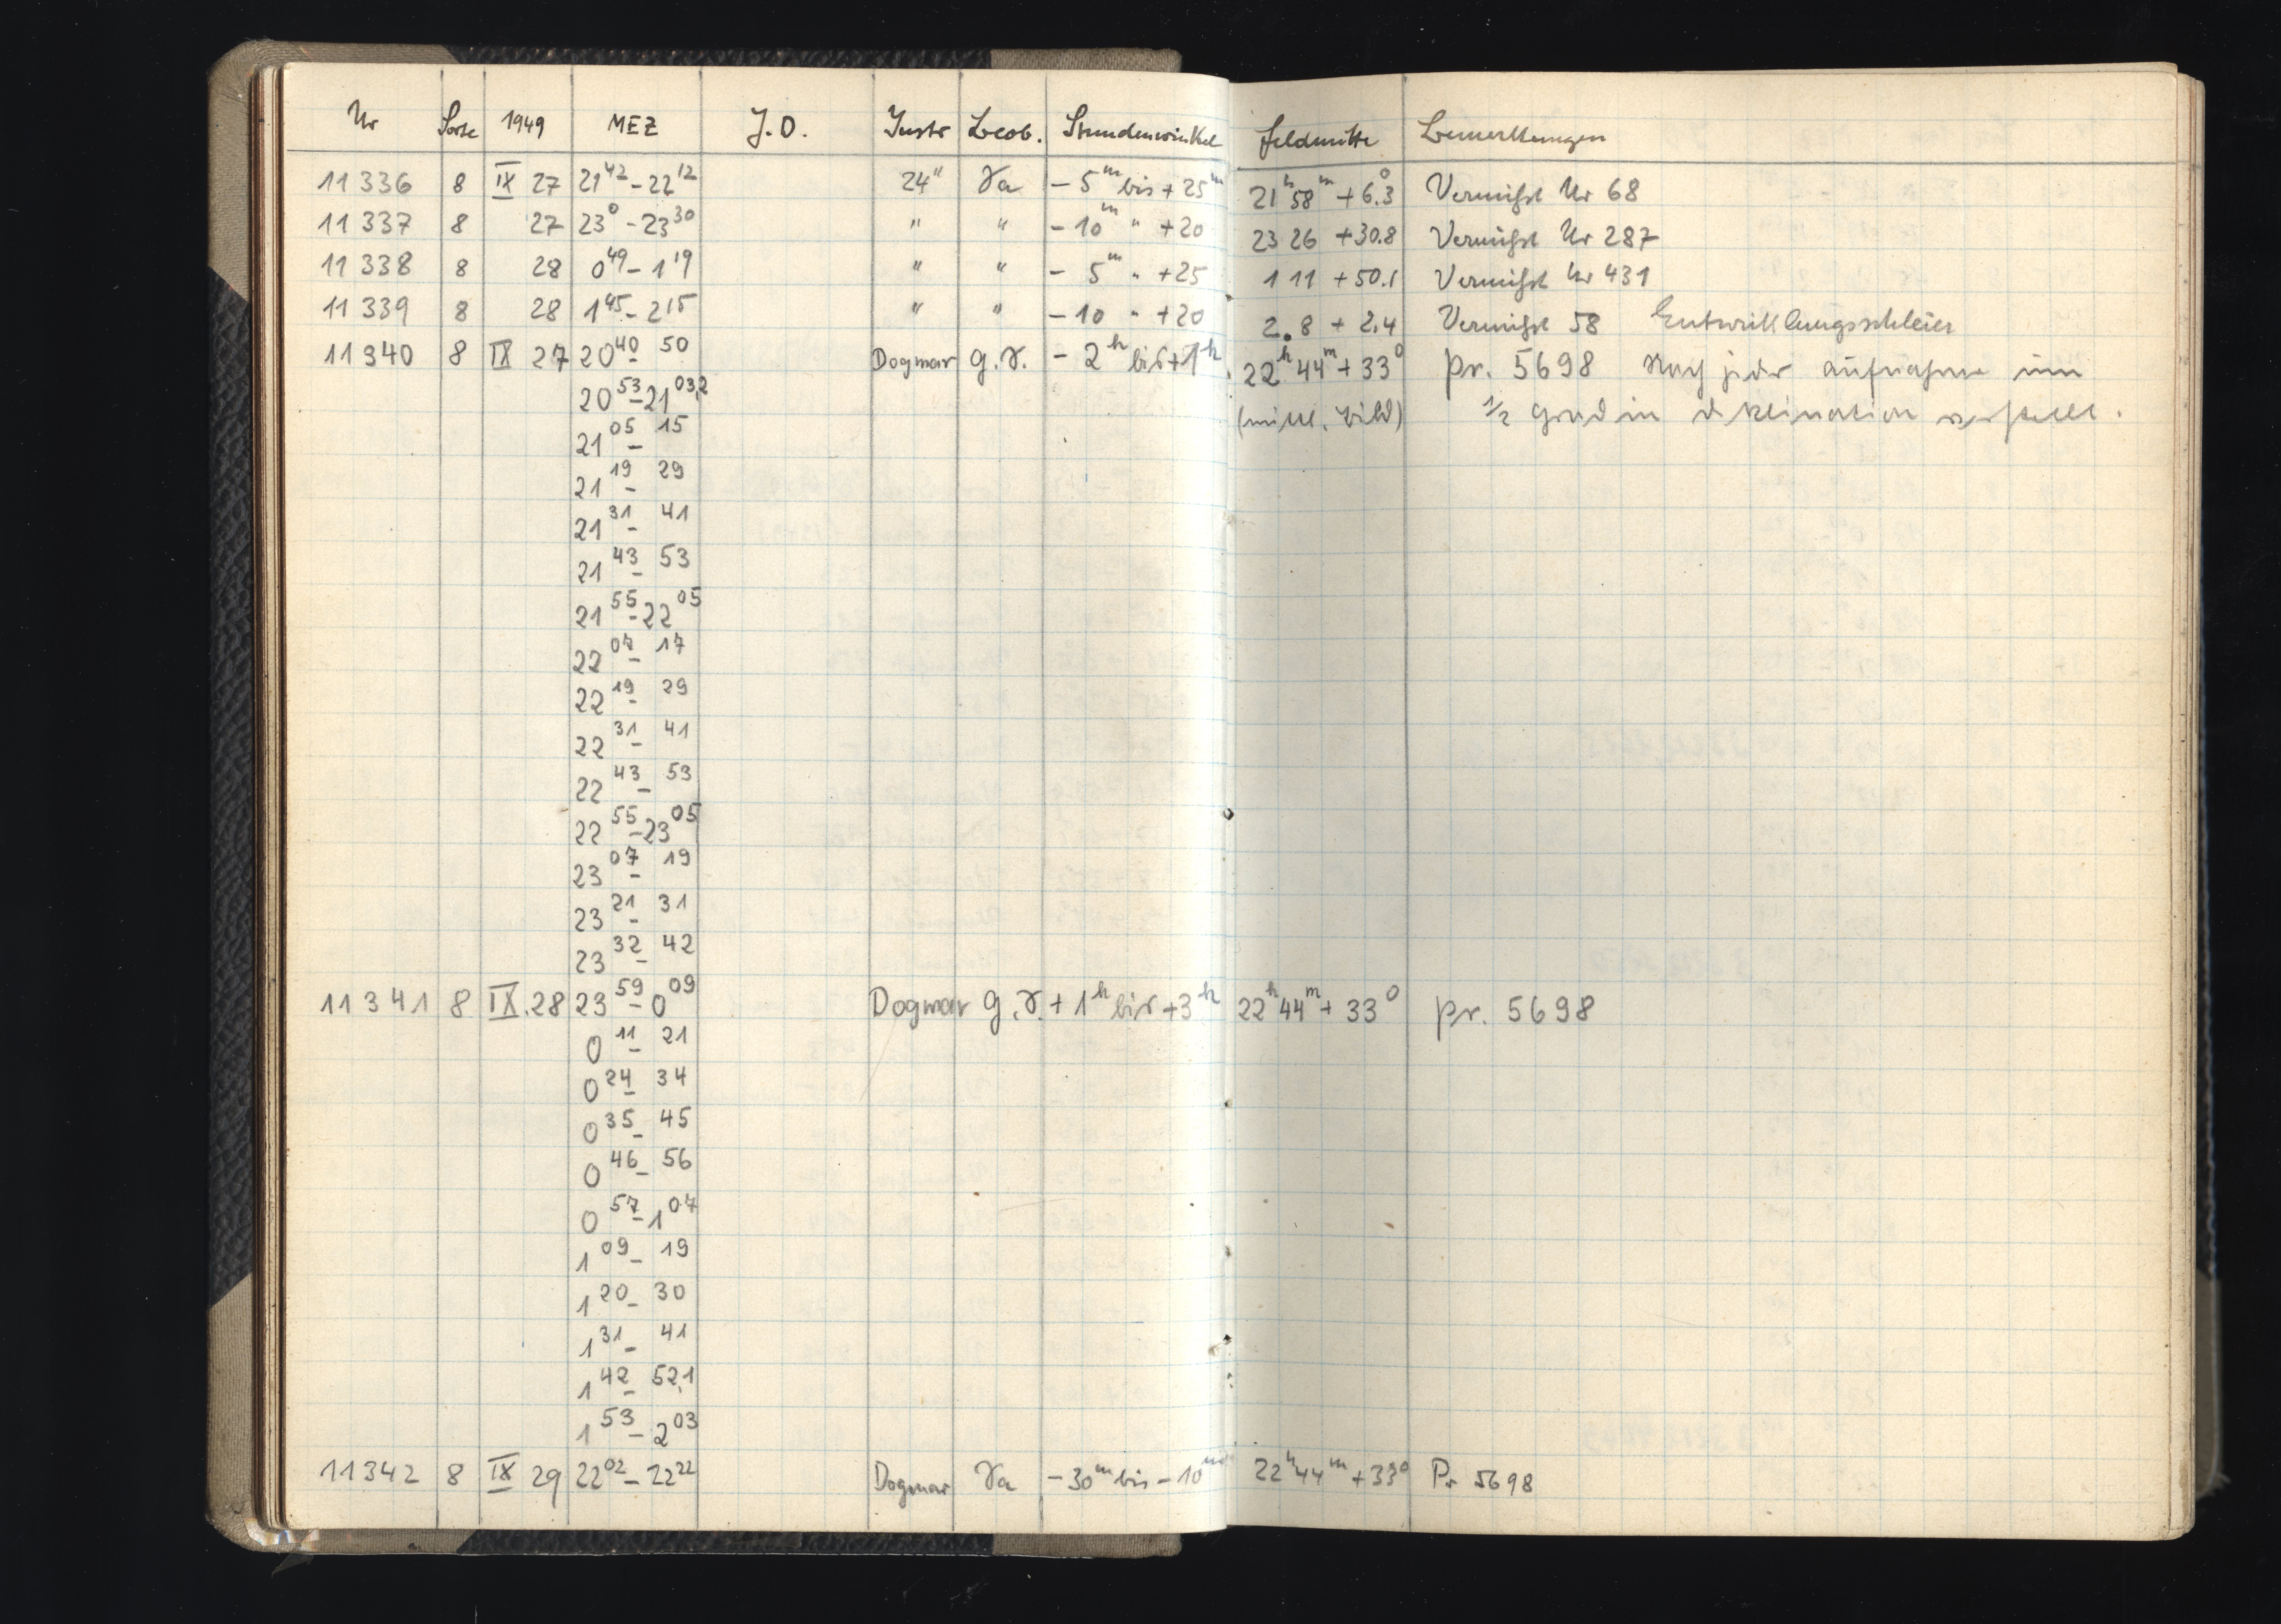 Nr Sorte 1949 MEZ J.D. Instr Beob. Stundenwinkel Feldmitte Bemerkungen
11336 8 IX 27 21 42 - 22 12 24" - 5 m bis + 25 m 21 h 58 m + 6.3° Vermisst Nr 68
11337 8 27 23 0 - 23 30 " " - 10 m " + 20 23 26 + 30.8 Vermisst Nr 287
11338 8 28 0 49 - 1 19 " " - 5 m " + 25 1 11 + 50.1 Vermisst Nr 431
11339 8 28 1 45 - 2 15 " " - 10 " + 20 2.8 + 2.4 Vermisst 58 Entwicklungsschleier
11340 8 IX 27 20 40 - 50 Dogmar - 2 h bis + 1 h 22 h 44 m + 33° Pr. 5698 Nach jeder Aufnahme um
20 53 - 21 03,2 (mittl. Bild) 1/2 Grad in Deklination verstellt.
21 05 - 15
21 19 - 29
21 31 - 41
21 43 - 53
21 55 - 22 05
22 07 - 17
22 19 - 29
22 31 - 41
22 43 - 53
22 55 - 23 05
23 07 - 19
23 21 - 31
23 32 - 42
11341 8 IX. 28 23 59 - 0 09 Dogmar + 1 h bis + 3 h 22 h 44 m + 33° Pr. 5698
0 11 - 21
0 24 - 34
0 35 - 45
0 46 - 56
0 57 - 1 07
1 09 - 19
1 20 - 30
1 31 - 41
1 42 - 52,1
1 53 - 2 03
11342 8 IX 29 22 02 - 22 22 Dogmar - 30 m bis - 10 m 22 h 44 m + 33° Pr 5698